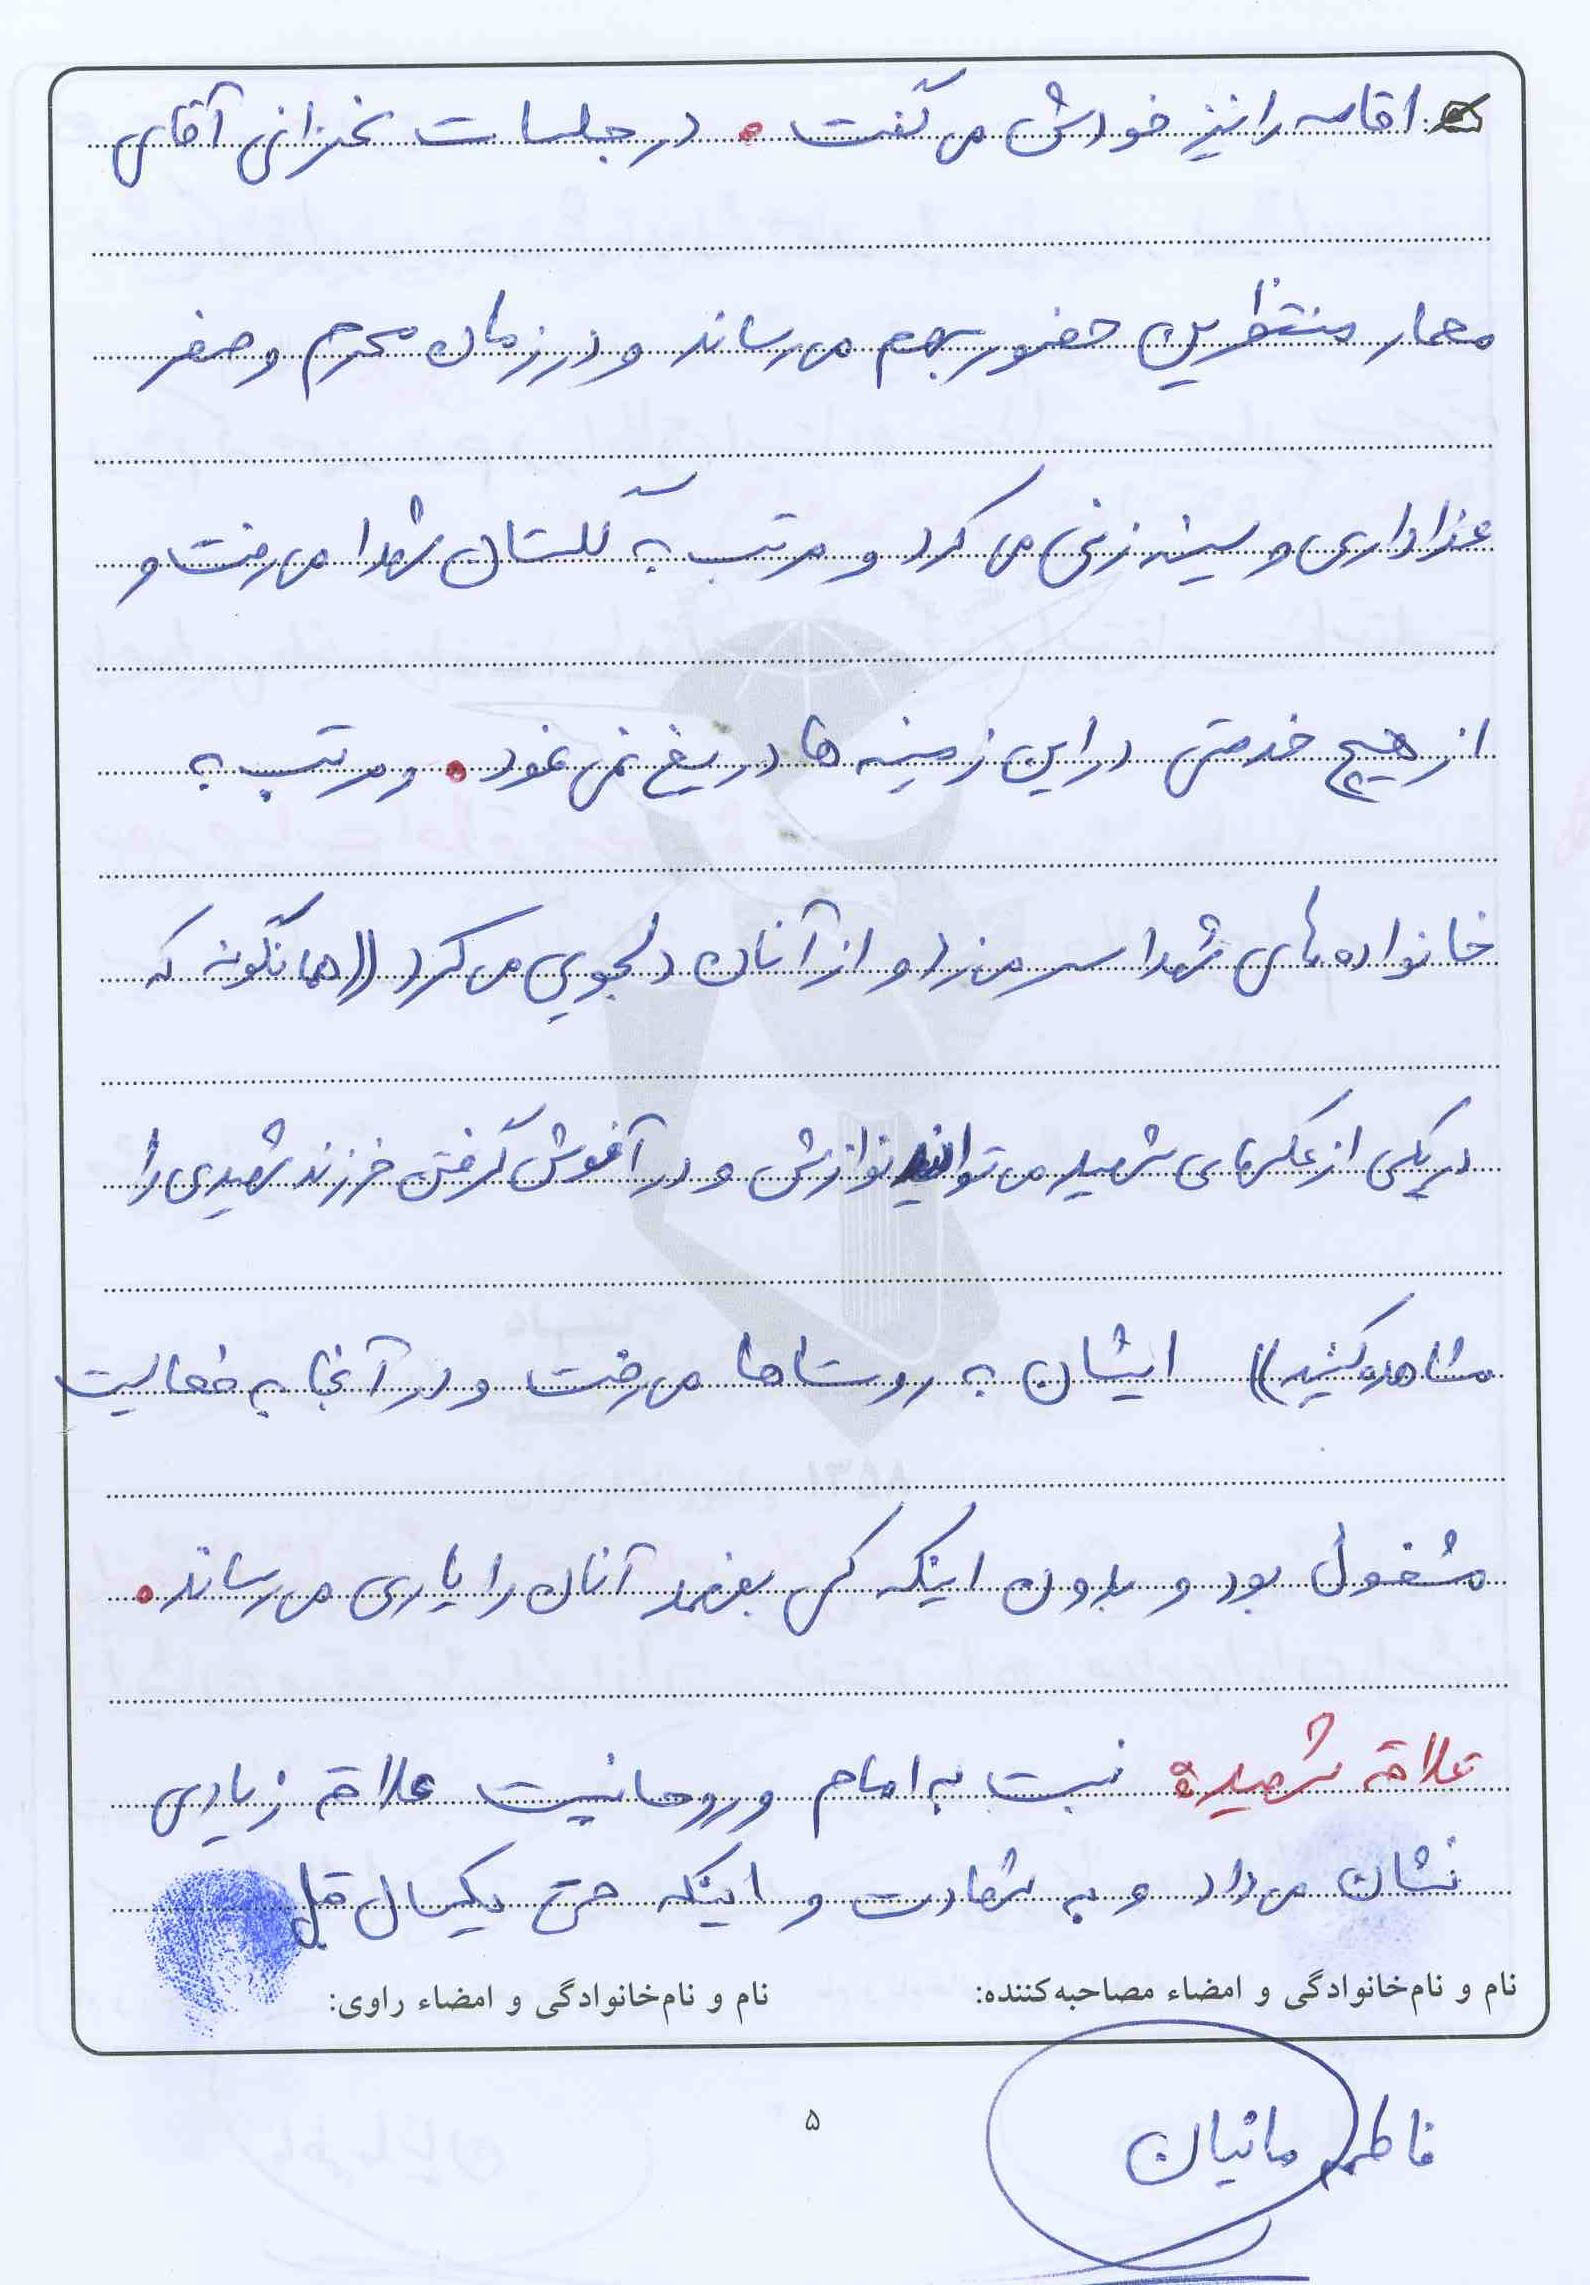 اقامه را نیز خودش می گفت . در جلسات سخنرانی آقای
معمار منتظرین حضور بهم می رساند و در زمان محرم و صفر
عزاداری و سینه زنی می کرد و مرتب به گلستان شهدا می رفت و
از هیچ خدمتی در این زمینه ها دریغ نمی نمود . و مرتب به
خانواده های شهدا سر می زد و از آنان دلجویی می کرد ((همانگونه که
در یکی از عکسهای شهید می توانید نوازش و در آغوش گرفتن فرزند شهیدی را
مشاهده کنید)) ایشان به روستاها می رفت و در آنجا به فعالیت
مشغول بود و بدون اینکه کسی بفهمد آنان را یاری می رساند .
علاقه شهیده نسبت به امام و روحانیت علاقه زیادی
نشان می داد و به شهادت و اینکه حتی یکسال قبل
نام و نام‌خانوادگی و امضاء مصاحبه‌کننده:
نام و نام‌خانوادگی و امضاء راوی:
فاطمه مانیان
۵
۱۳۵۸